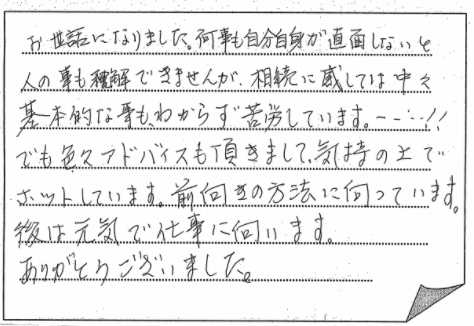 お世話になりました。何事も自分自身が直面しないと
人の事も理解できませんが、相続に感しては中々
基本的な事も、わからず苦労しています。ーー・・!!
でも色々アドバイスも頂きまして、気持の上で
ホットしています。前向きの方法に向っています。
後は元気で仕事に向います。
ありがとうございました。